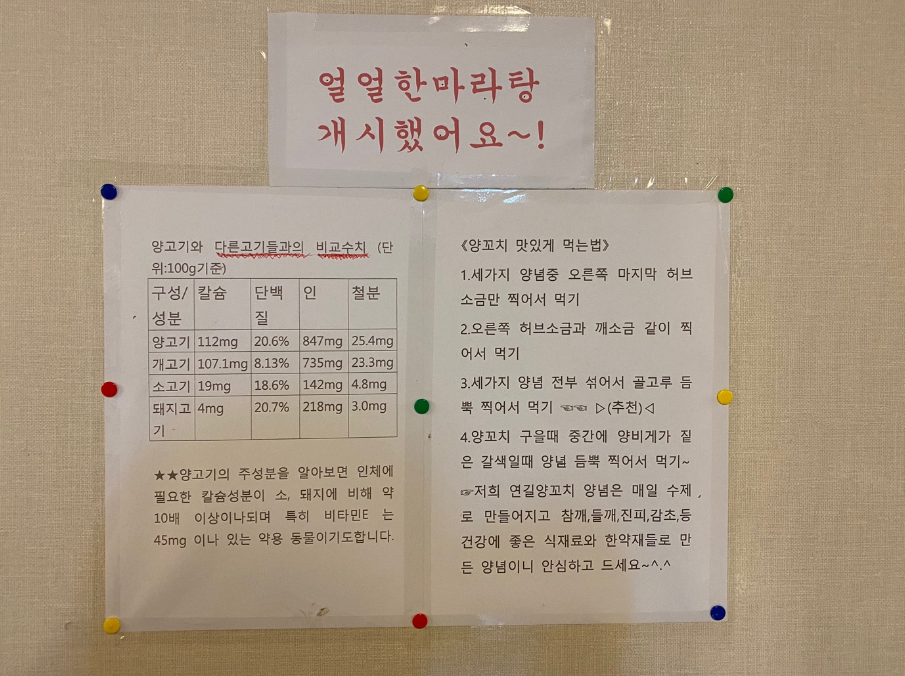 얼얼한마라탕
개시했어요~!
양고기와 다른고기들과의 비교수치 (단
위:100g기준)
구성/성분 칼슘 단백질 인 철분
양고기 112mg 20.6% 847mg 25.4mg
개고기 107.1mg 8.13% 735mg 23.3mg
소고기 19mg 18.6% 142mg 4.8mg
돼지고기 4mg 20.7% 218mg 3.0mg
★★양고기의 주성분을 알아보면 인체에
필요한 칼슘성분이 소, 돼지에 비해 약
10배 이상이나되며 특히 비타민E 는
45mg 이나 있는 약용 동물이기도합니다.
《양꼬치 맛있게 먹는법》
1.세가지 양념중 오른쪽 마지막 허브
소금만 찍어서 먹기
2.오른쪽 허브소금과 깨소금 같이 찍
어서 먹기
3.세가지 양념 전부 섞어서 골고루 듬
뿍 찍어서 먹기 ☜☜ ▷(추천)◁
4.양꼬치 구울때 중간에 양비게가 짙
은 갈색일때 양념 듬뿍 찍어서 먹기~
☞저희 연길양꼬치 양념은 매일 수제
로 만들어지고 참깨,들깨,진피,감초,등
건강에 좋은 식재료와 한약재들로 만
든 양념이니 안심하고 드세요~^.^